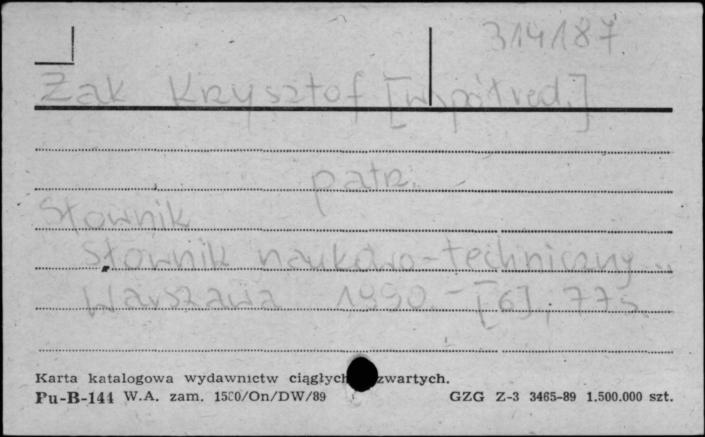 314187
Żak Krzysztof [współred.]
patrz
Słownik
Słownik naukowo-techniczny...
Warszawa 1990. - [6], 775.
Karta katalogowa wydawnictw ciągłych zwartych.
Pu-B-144 W.A. zam. 1500/On/DW/89 GZG Z-3 3465-89 1.500.000 szt.